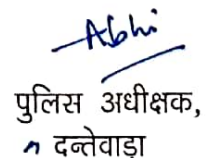 Abhi
पुलिस अधीक्षक,
दन्तेवाड़ा